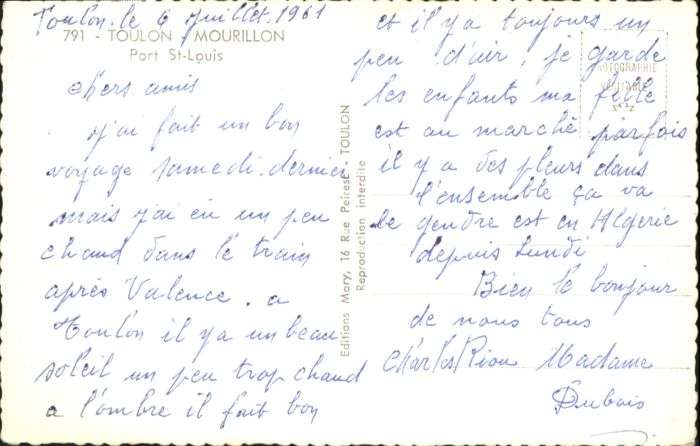 Toulon le 6 Juillet 1961
791 - TOULON MOURILLON
Port St-Louis
chers amis
j'ai fait un bon
voyage samedi dernier
mais j'ai eu un peu
chaud dans le train
après Valence. a
Toulon il y a un beau
soleil un peu trop chaud
a l'ombre il fait bon
Editions Mary, 16 Rue Peiresc - TOULON
Reproduction interdite
PHOTOGRAPHIE
VÉRITABLE
et il y a toujours un
peu d'air, je garde
les enfants ma fille
est au marché parfois
il y a des pleurs dans
l'ensemble ça va
le gendre est en Algerie
depuis Lundi
Bien le bonjour
de nous tous
Charles Madame
Dubois